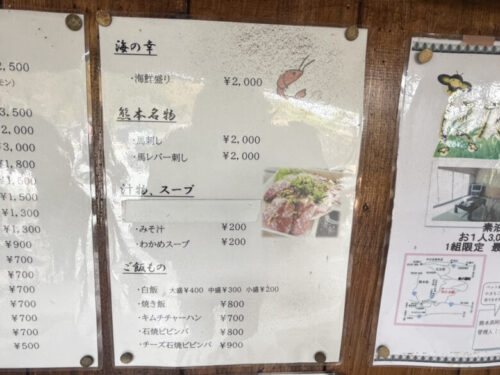 2,500
¥3,500
2,000
¥3,000
¥1,800
¥1,500
¥1,300
¥1,300
¥900
¥700
¥700
¥700
¥700
¥500
海の幸
・海鮮盛り ¥2,000
熊本名物
・馬刺し ¥2,000
・馬レバー刺し ¥2,000
汁物、スープ
・みそ汁 ¥200
・わかめスープ ¥200
ご飯もの
・白飯 大盛¥400 中盛¥300 小盛¥200
・焼き飯 ¥800
・キムチチャーハン ¥700
・石焼ビビンバ ¥800
・チーズ石焼ビビンバ ¥900
素泊
お1人3,0
1組限定